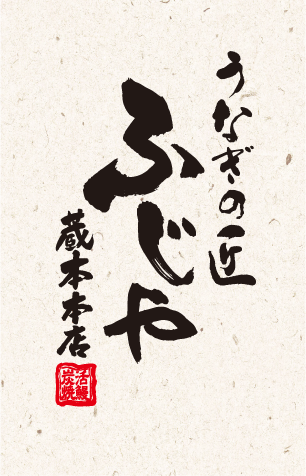 うなぎの匠
ふじや
蔵本本店